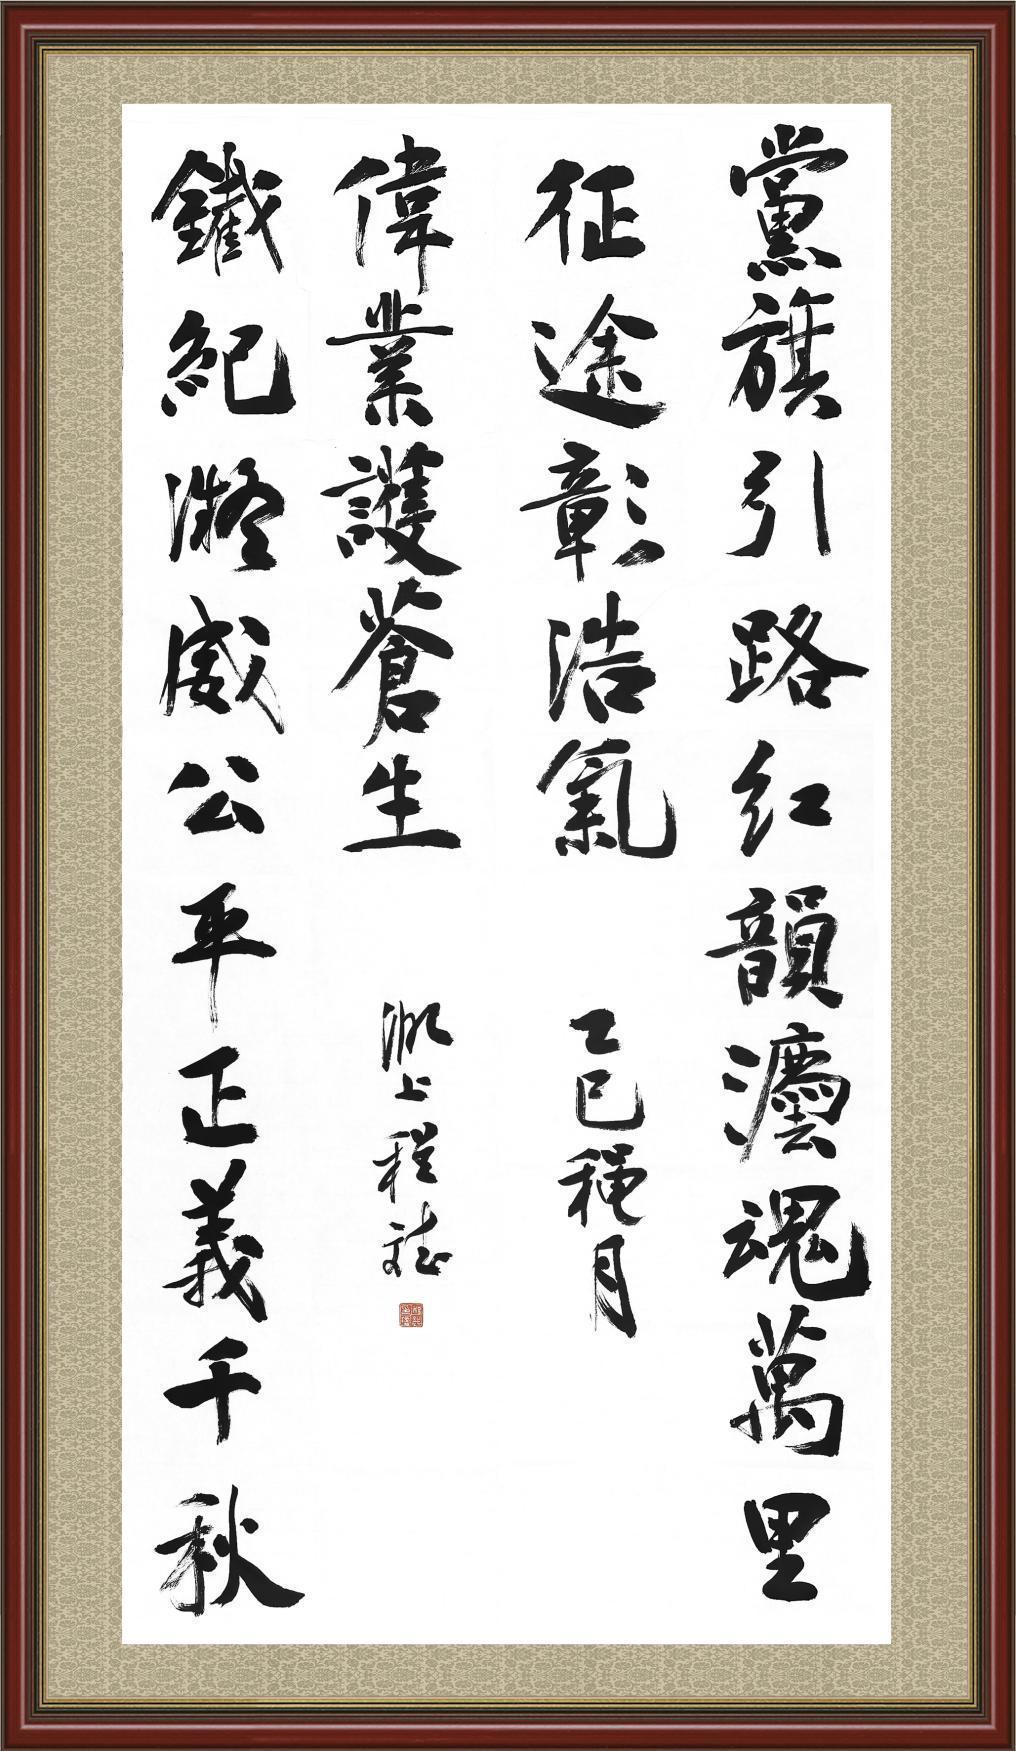 黨旗引路红韻灋魂萬里
征途彰浩氣
乙巳穐月
鐵紀凝威公平正義千秋
偉業護蒼生
上程斌